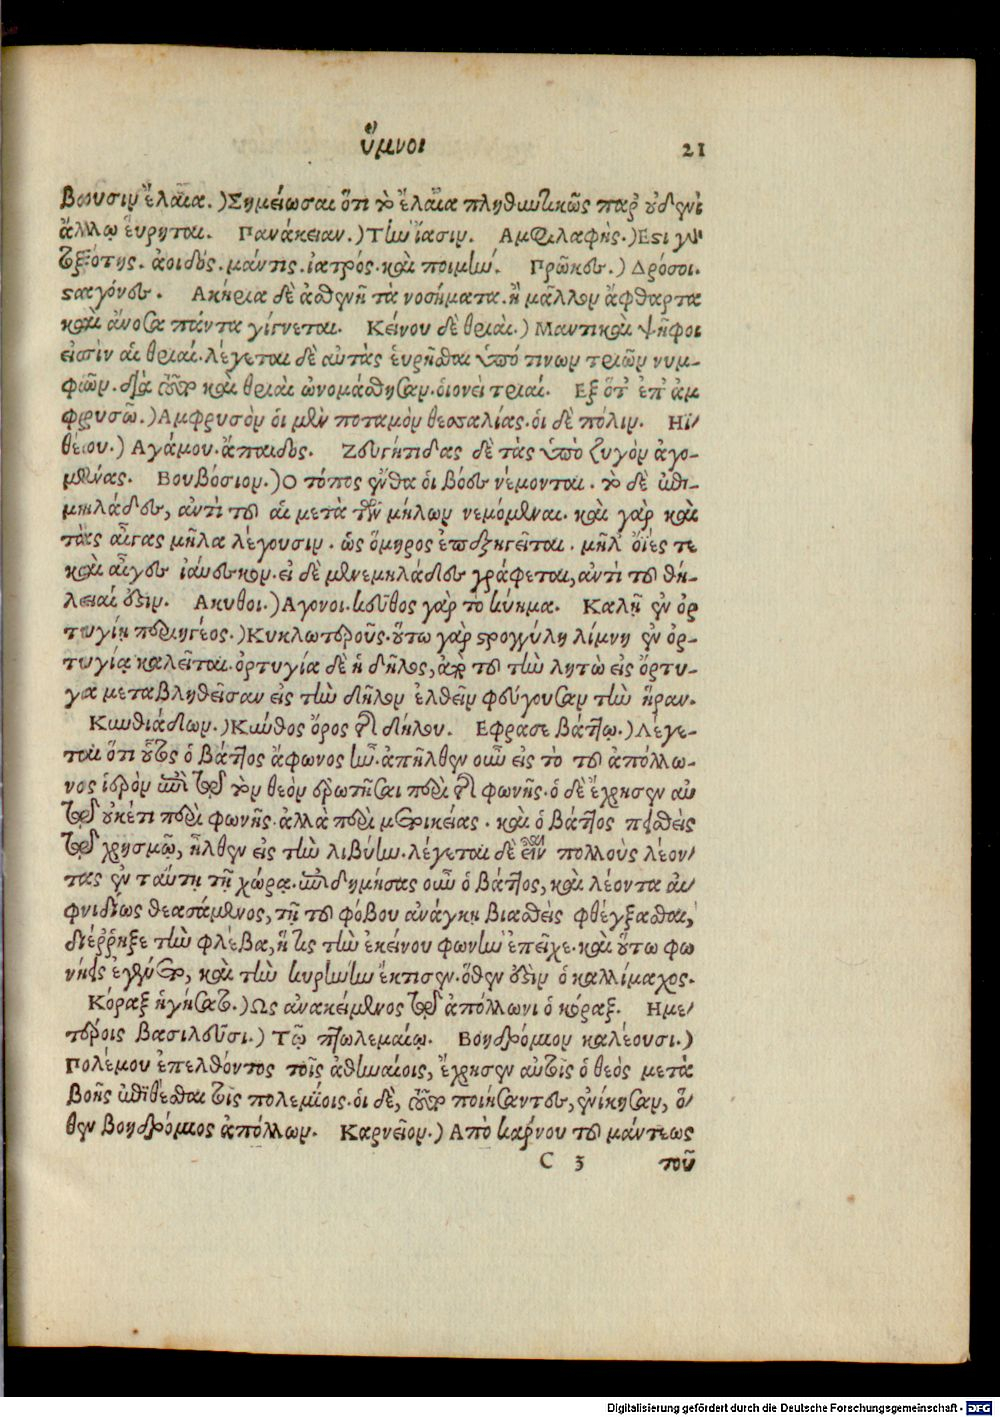 ὕμνοι 21
βουσιν ἔλαια.) Σημείωσαι ὅτι τὸ ἔλαια πληθυντικῶς παρ' οὐδενὶ
ἄλλῳ εὕρηται. Πανάκειαν.) Τὴν ἴασιν. Αμφιλαφής.) Εστι γὰρ
τοξότης. ἀοιδός. μάντις. ἰατρός. καὶ ποιμήν. Πρῶκες.) Δρόσοι.
σταγόνες. Ακήρια δὲ ἀσθενῆ τὰ νοσήματα. ἢ μᾶλλον ἄφθαρτα
καὶ ἄνοσα πάντα γίγνεται. Κείνου δὲ θριαὶ.) Μαντικαὶ ψῆφοι
εἰσὶν αἱ θριαί. λέγεται δὲ αὐτὰς εὑρῆσθαι ὑπό τινων τριῶν νυμ-
φῶν. διὰ τοῦτο καὶ θριαὶ ὠνομάσθησαν. οἱονεὶ τριαί. Εξ ὅτ' ἐπ' ἀμ
φρυσῶ.) Αμφρυσὸν οἱ μὲν ποταμὸν θεσσαλίας. οἱ δὲ πόλιν. Ηϊ
θέου.) Αγάμου. ἄπαιδος. Ζευγήτιδας δὲ τὰς ὑπὸ ζυγὸν ἀγο-
μένας. Βουβόσιον.) Ο τόπος ἔνθα οἱ βόες νέμονται. τὸ δὲ ἐπι-
μηλάδες, ἀντὶ τοῦ αἱ μετὰ τῶν μήλων νεμόμεναι. καὶ γὰρ καὶ
τὰς αἶγας μῆλα λέγουσιν. ὡς ὅμηρος ἐπεξηγεῖται. μῆλ' ὄϊές τε
καὶ αἶγες ἰαύεσκον. εἰ δὲ μενεμηλάδες γράφεται, ἀντὶ τοῦ θή-
λειαί εἰσιν. Ακυθοι.) Αγονοι. κεῦθος γὰρ τὸ κύημα. Καλῇ ἐν ὀρ
τυγίῃ περιηγέος.) Κυκλωτεροῦς. οὕτω γὰρ στρογγύλη λίμνη ἐν ὀρ-
τυγίᾳ καλεῖται. ὀρτυγία δὲ ἡ δῆλος, ἀπὸ τοῦ τὴν λητὼ εἰς ὄρτυ-
γα μεταβληθεῖσαν εἰς τὴν δῆλον ἐλθεῖν φεύγουσαν τὴν ἥραν.
Κυνθιάδων.) Κύνθος ὄρος τῆς δήλου. Εφρασε βάττῳ.) Λέγε-
ται ὅτι οὗτος ὁ βάττος ἄφωνος ἦν. ἀπῆλθεν οὖν εἰς τὸ τοῦ ἀπόλλω-
νος ἱερὸν ἐπὶ τῷ τὸν θεὸν ἐρωτῆσαι περὶ τῆς φωνῆς. ὁ δὲ ἔχρησεν αὐ
τῷ οὐκέτι περὶ φωνῆς. ἀλλὰ περὶ μετοικείας. καὶ ὁ βάττος πεισθεὶς
τῷ χρησμῷ, ἦλθεν εἰς τὴν λιβύην. λέγεται δὲ εἶναι πολλοὺς λέον
τας ἐν ταύτῃ τῇ χώρᾳ. ἐπιδημήσας οὖν ὁ βάττος, καὶ λέοντα αἰ
φνιδίως θεασάμενος, τῇ τοῦ φόβου ἀνάγκῃ βιασθεὶς φθέγξασθαι,
διέῤῥηξε τὴν φλέβα, ἥ τις τὴν ἐκείνου φωνὴν ἐπεῖχε. καὶ οὕτω φω
νήεις ἐγένετο, καὶ τὴν κυρήνην ἔκτισεν. ὅθεν ἐστὶν ὁ καλλίμαχος.
Κόραξ ἡγήσατο.) Ως ἀνακείμενος τῷ ἀπόλλωνι ὁ κόραξ. Ημε
τέροις βασιλεῦσι.) Τῷ πτωλεμαίῳ. Βοηδρόμιον καλέουσι.)
Πολέμου ἐπελθόντος τοῖς ἀθηναίοις, ἔχρησεν αὐτοῖς ὁ θεὸς μετὰ
βοῆς ἐπιθέσθαι τοῖς πολεμίοις. οἱ δὲ, τοῦτο ποιήσαντες, ἐνίκησαν, ὅ
θεν βοηδρόμιος ἀπόλλων. Καρνεῖον.) Απὸ κάρνου τοῦ μάντεως
C 3 τοῦ
Digitalisierung gefördert durch die Deutsche Forschungsgemeinschaft - DFG